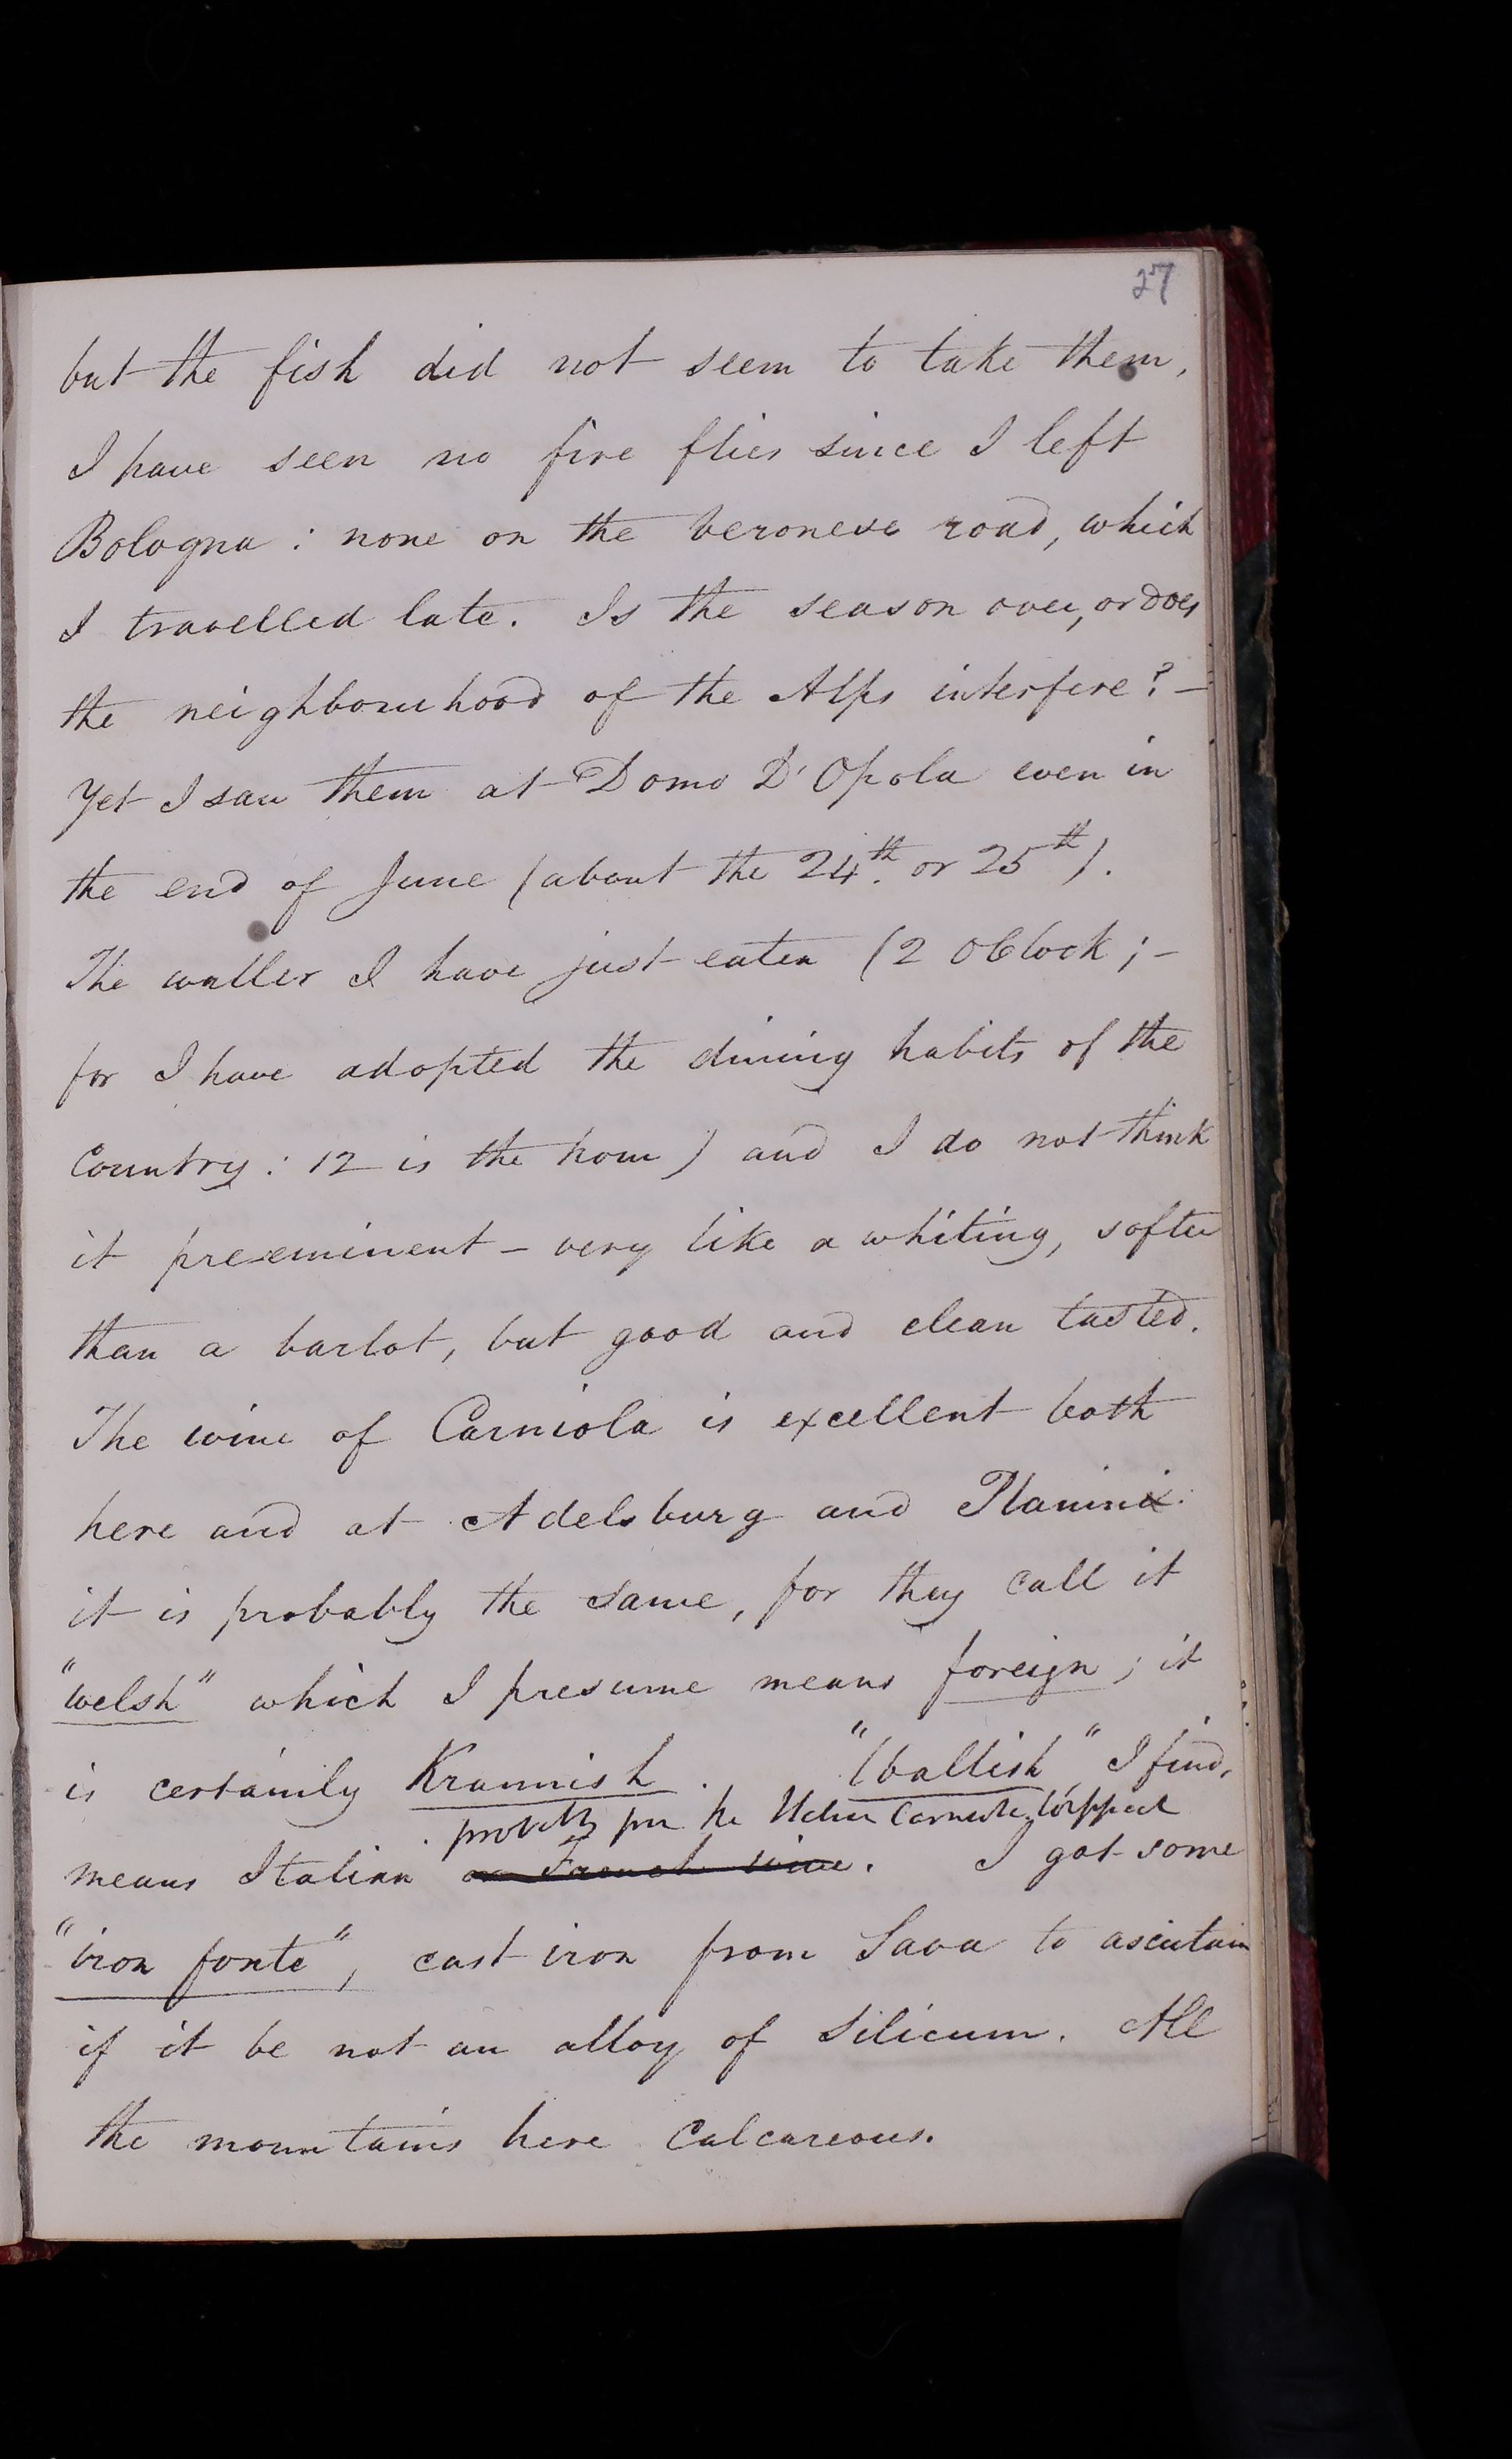 27
but the fish did not seem to take them,
I have seen no fire flies since I left
Bologna: none on the Veronese road, which
I travelled late. Is the season over, or does
the neighbourhood of the Alps interfere? -
Yet I saw them at Domo D'Opola even in
the end of June (about the 24th. or 25th).
The waller I have just eaten (2 OClock; -
for I have adopted the dining habits of the
Country: 12 is the hour) and I do not think
it pre-eminent - very like a whiting, softer
than a barlot, but good and clean tasted.
The wine of Carniola is excellent both
here and at Adelsburg and Planina:
it is probably the same, for they call it
"welsh" which I presume means foreign; it
is certainly Krannish. "(Wallish" I find,
probably from the
means Italian or French wine. I got some
"iron fonte", cast iron from Sava to ascertain
if it be not an alloy of Silicum. All
the mountains here Calcareous.